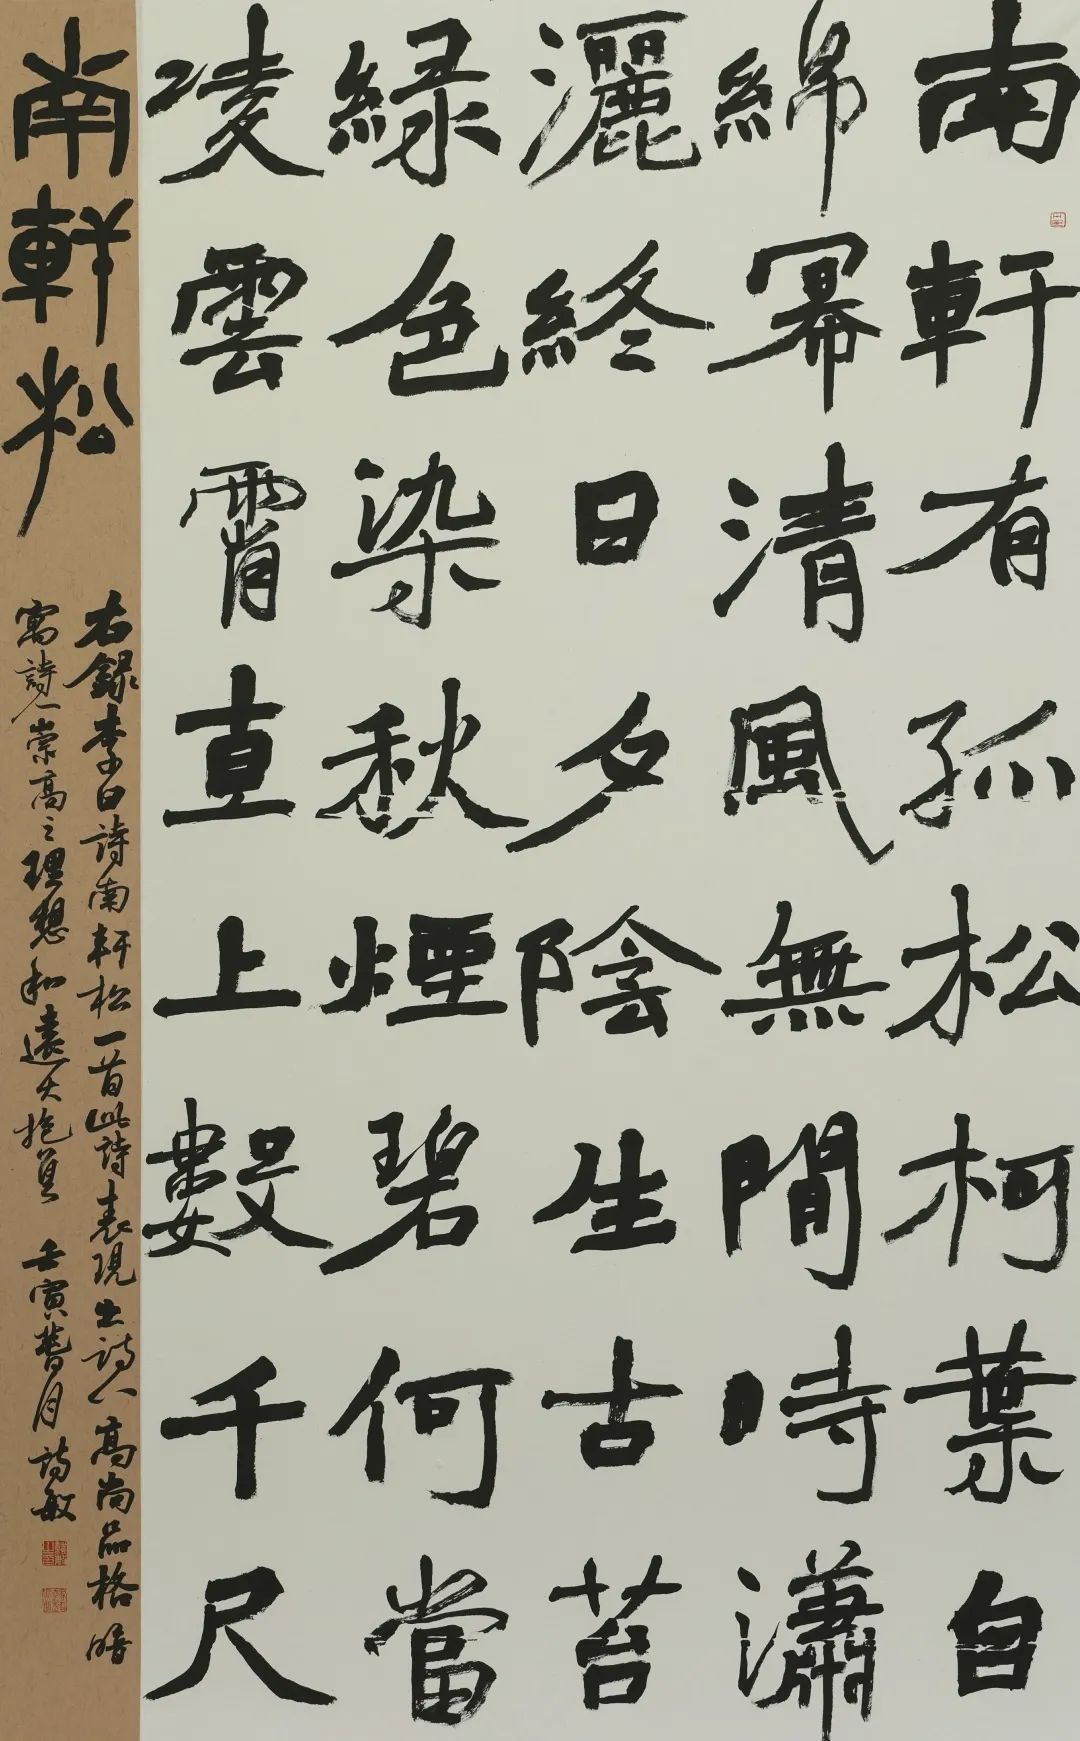 南軒有孤松柯葉自
綿冪清風無閒時瀟
灑終日夕陰生古苔
緑色染秋煙碧何當
凌雲霄直上數千尺
南軒松
右録李白詩南軒松一首此詩表現出詩人高尚品格暗
寓詩人崇高之理想和遠大抱負 壬寅月詩敏